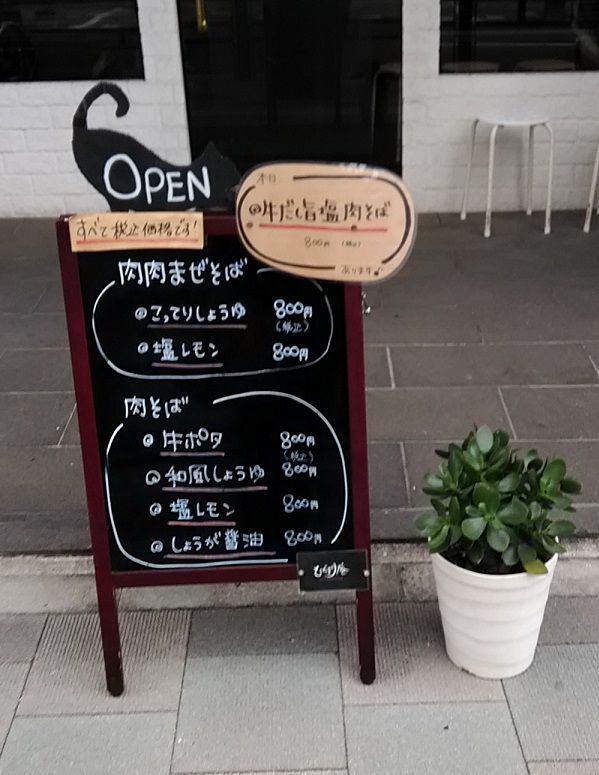 OPEN
本日
牛だし旨塩肉そば
800円 (税込)
あります♪
すべて税込価格です!
肉肉まぜそば
こってりしょうゆ 800円
(税込)
塩レモン 800円
肉そば
牛ポタ 800円
(税込)
和風しょうゆ 800円
塩レモン 800円
しょうが醤油 800円